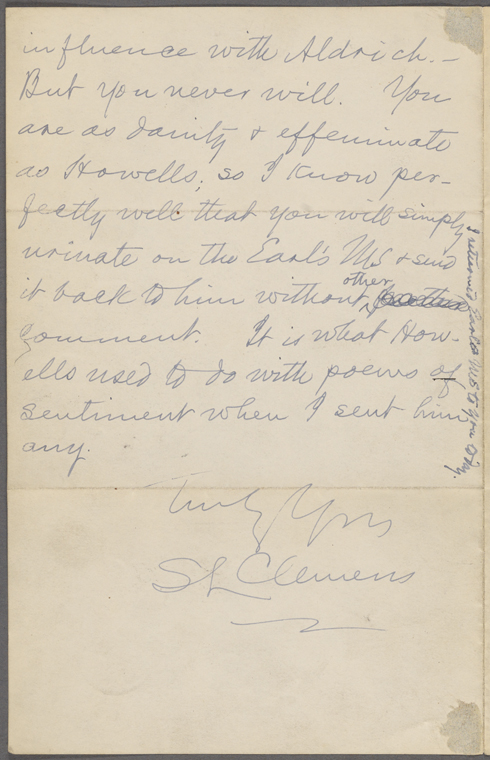 influence with Aldrich.—
But you never will. You
are as dainty & effeminate
as Howells; so I know per-
fectly well that you will simply
urinate on the Earl's MS & send
it back to him without other
comment. It is what How-
ells used to do with poems of
sentiment when I sent him
any.
Truly Yours
SL Clemens
I returned Earl's MS to you